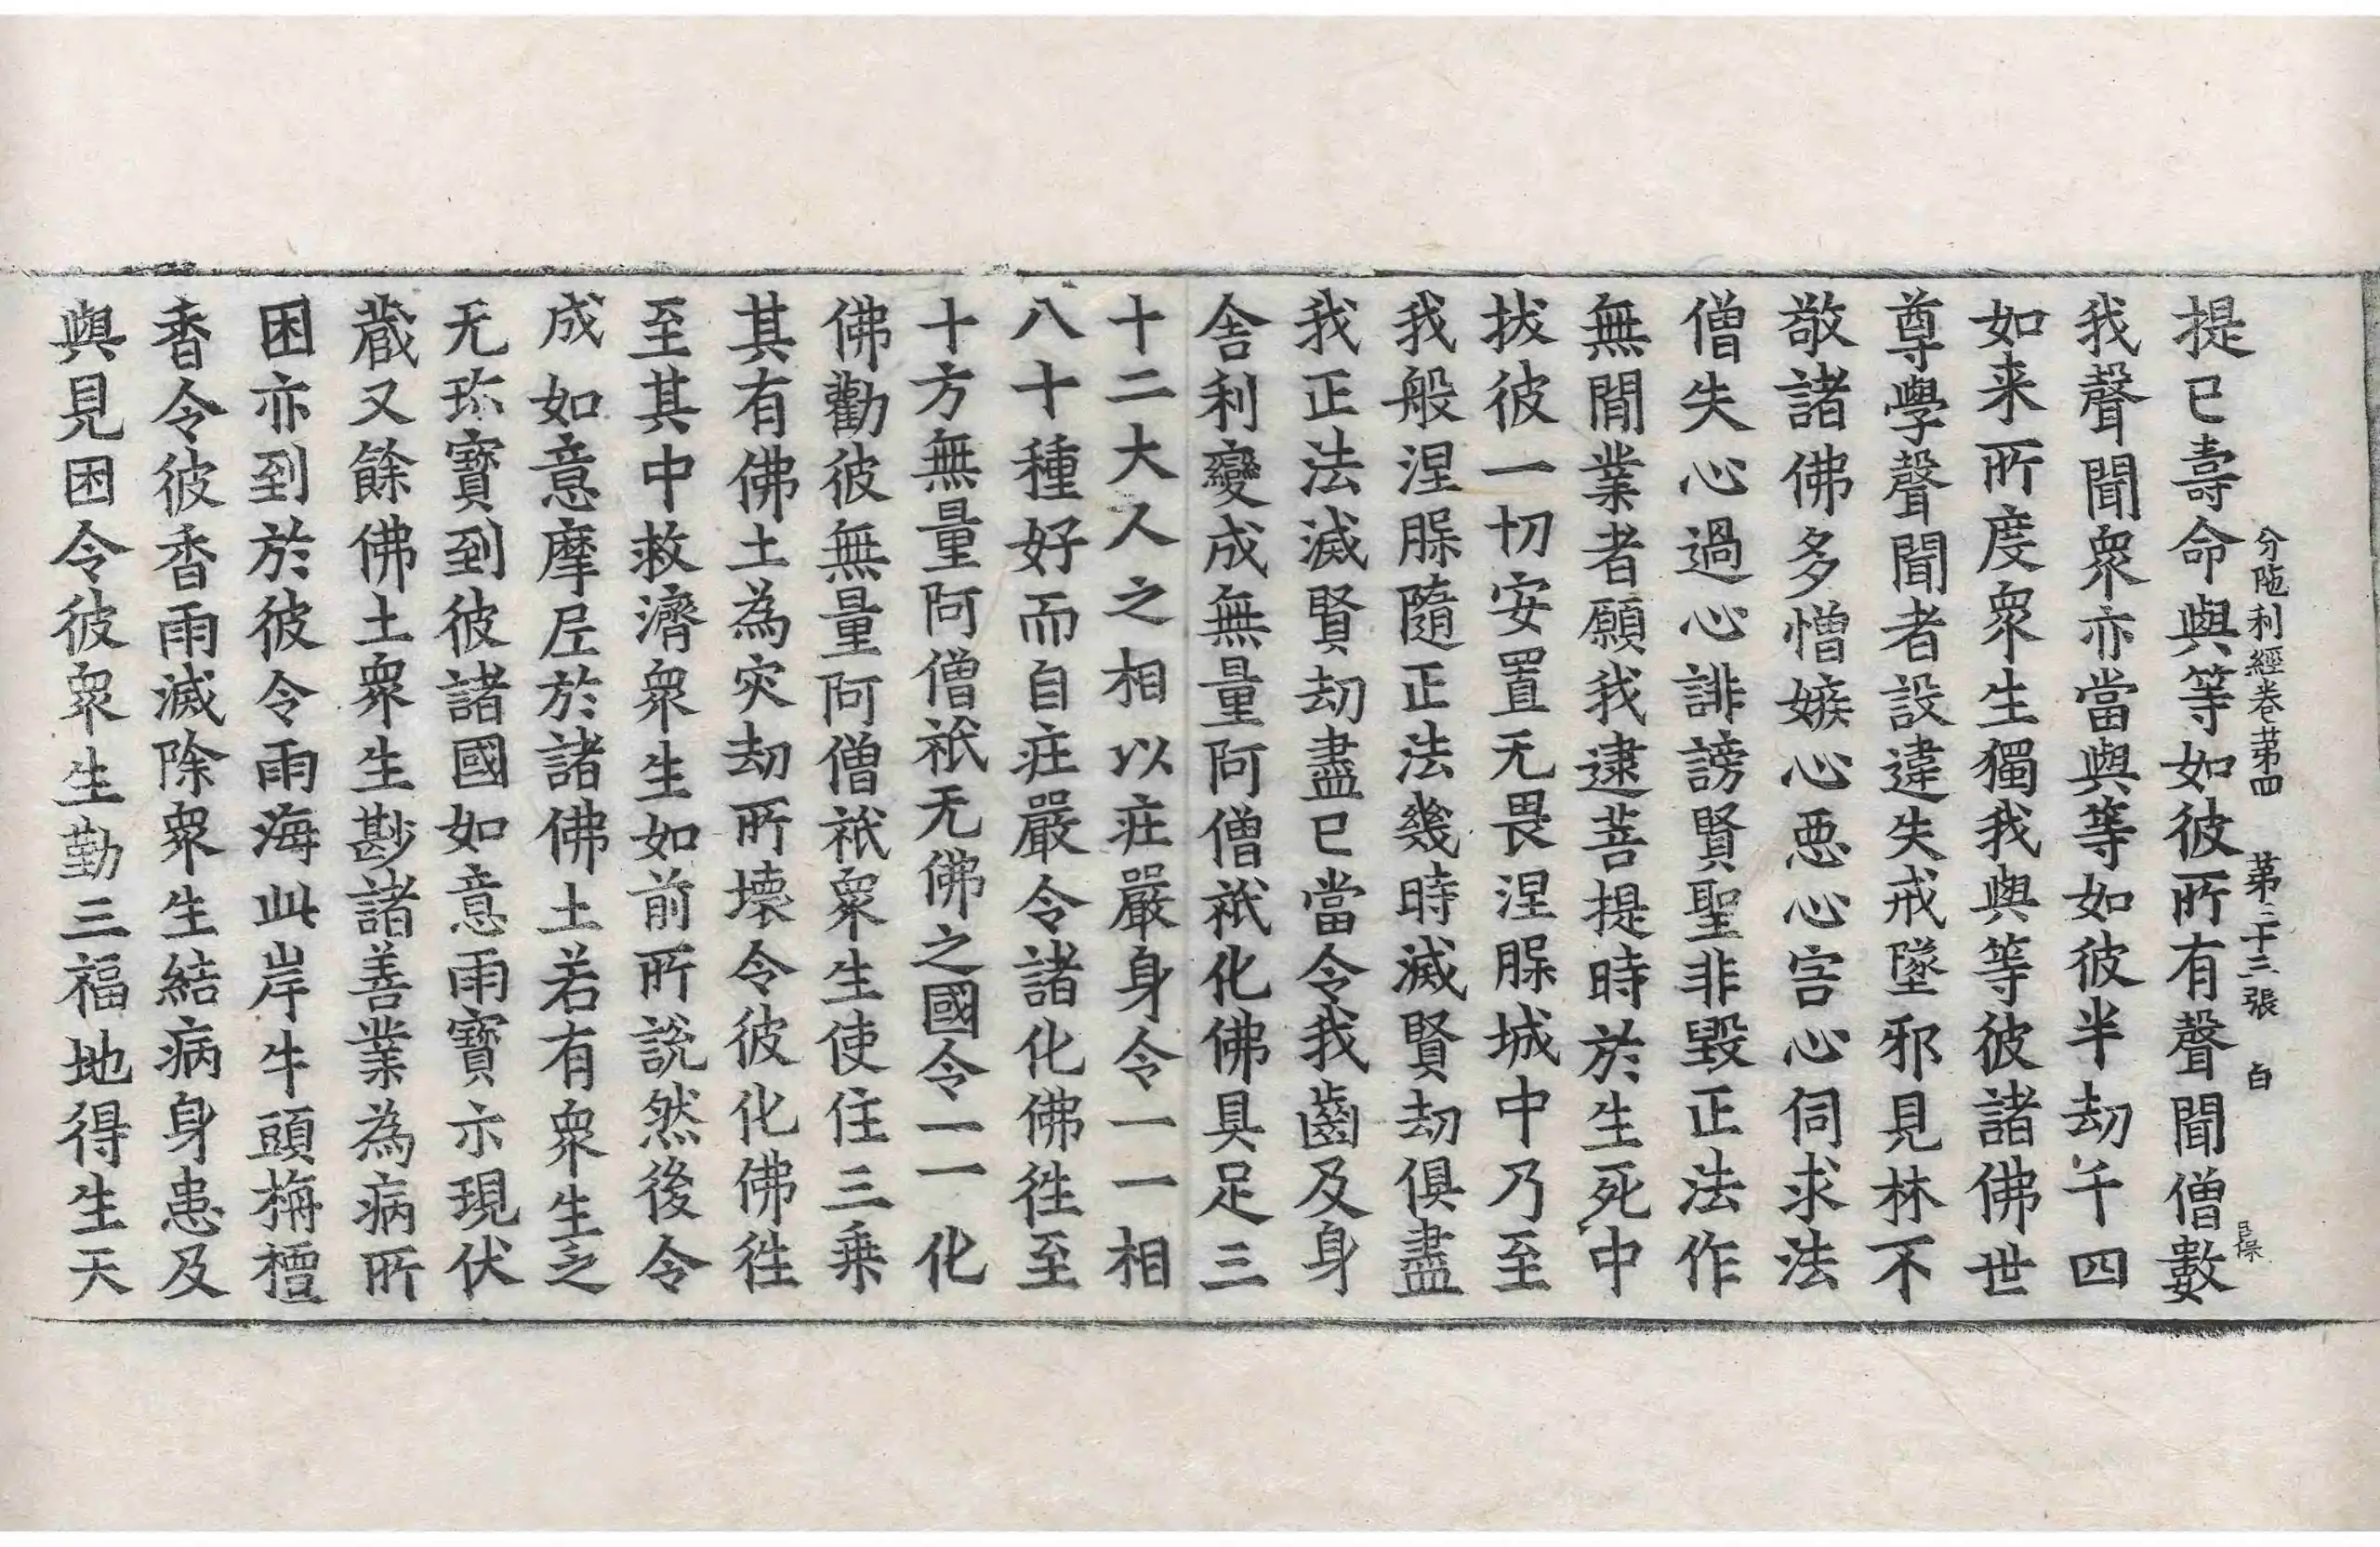 分陁利經卷第四　第二十三張　白
提已壽命與等如彼所有聲聞僧數
我聲聞衆亦當與等如彼半劫千四
如来所度衆生獨我與等彼諸佛世
尊學聲聞者設違失戒墜邪見林不
敬諸佛多憎嫉心惡心害心伺求法
僧失心過心誹謗賢聖非毀正法作
無閒業者願我逮菩提時於生死中
拔彼一切安置无畏涅脲城中乃至
我般涅脲隨正法幾時滅賢劫俱盡
我正法滅賢劫盡已當令我齒及身
舍利變成無量阿僧祇化佛具足三
十二大人之相以莊嚴身令一一相
八十種好而自莊嚴令諸化佛徃至
十方無量阿僧祇无佛之國令一一化
佛勸彼無量阿僧祇衆生使住三乗
其有佛土為灾劫所壊令彼化佛徃
至其中救濟衆生如前所說然後令
成如意摩尼於諸佛土若有衆生之
无珎寶到彼諸國如意雨寶亦現伏
蔵又餘佛土衆生尠諸善業為病所
困亦到於彼令雨海此岸牛頭栴檀
香令彼香雨滅除衆生結病身患及
與見困令彼衆生勤三福地得生天